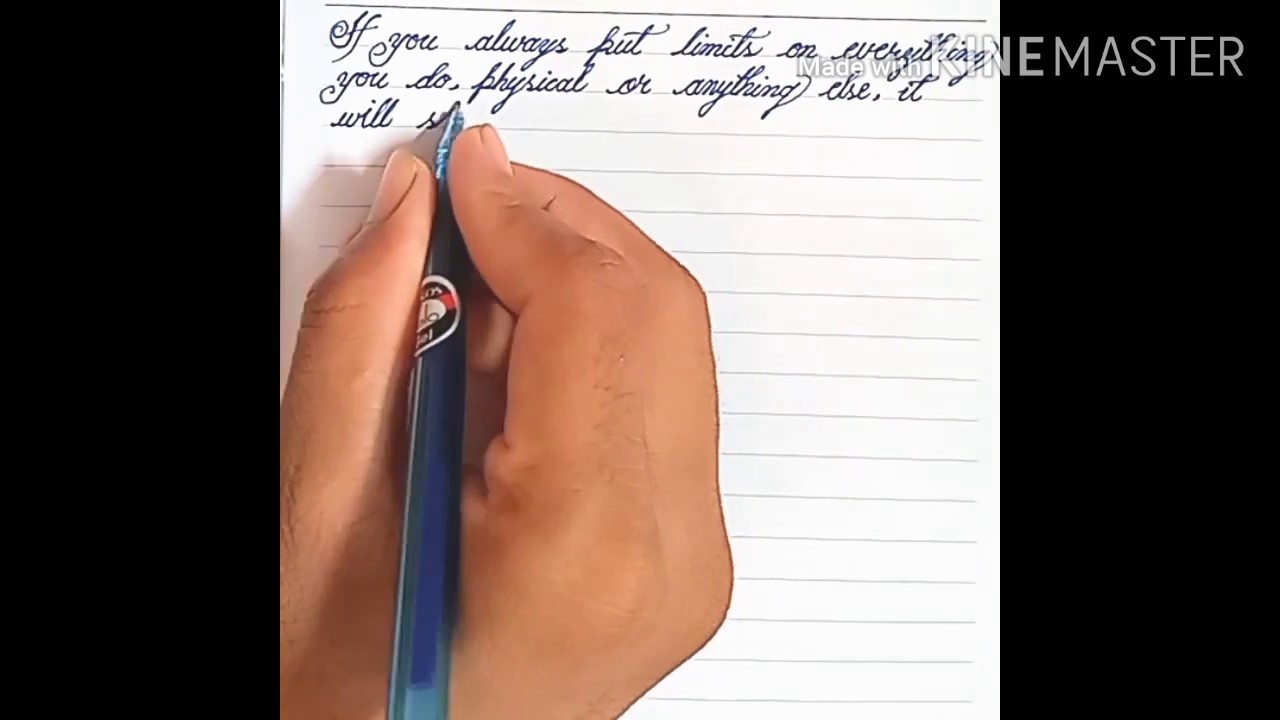 If you always put limits on everything
you do, physical or anything else, it
will s
Made with KINEMASTER
Gel